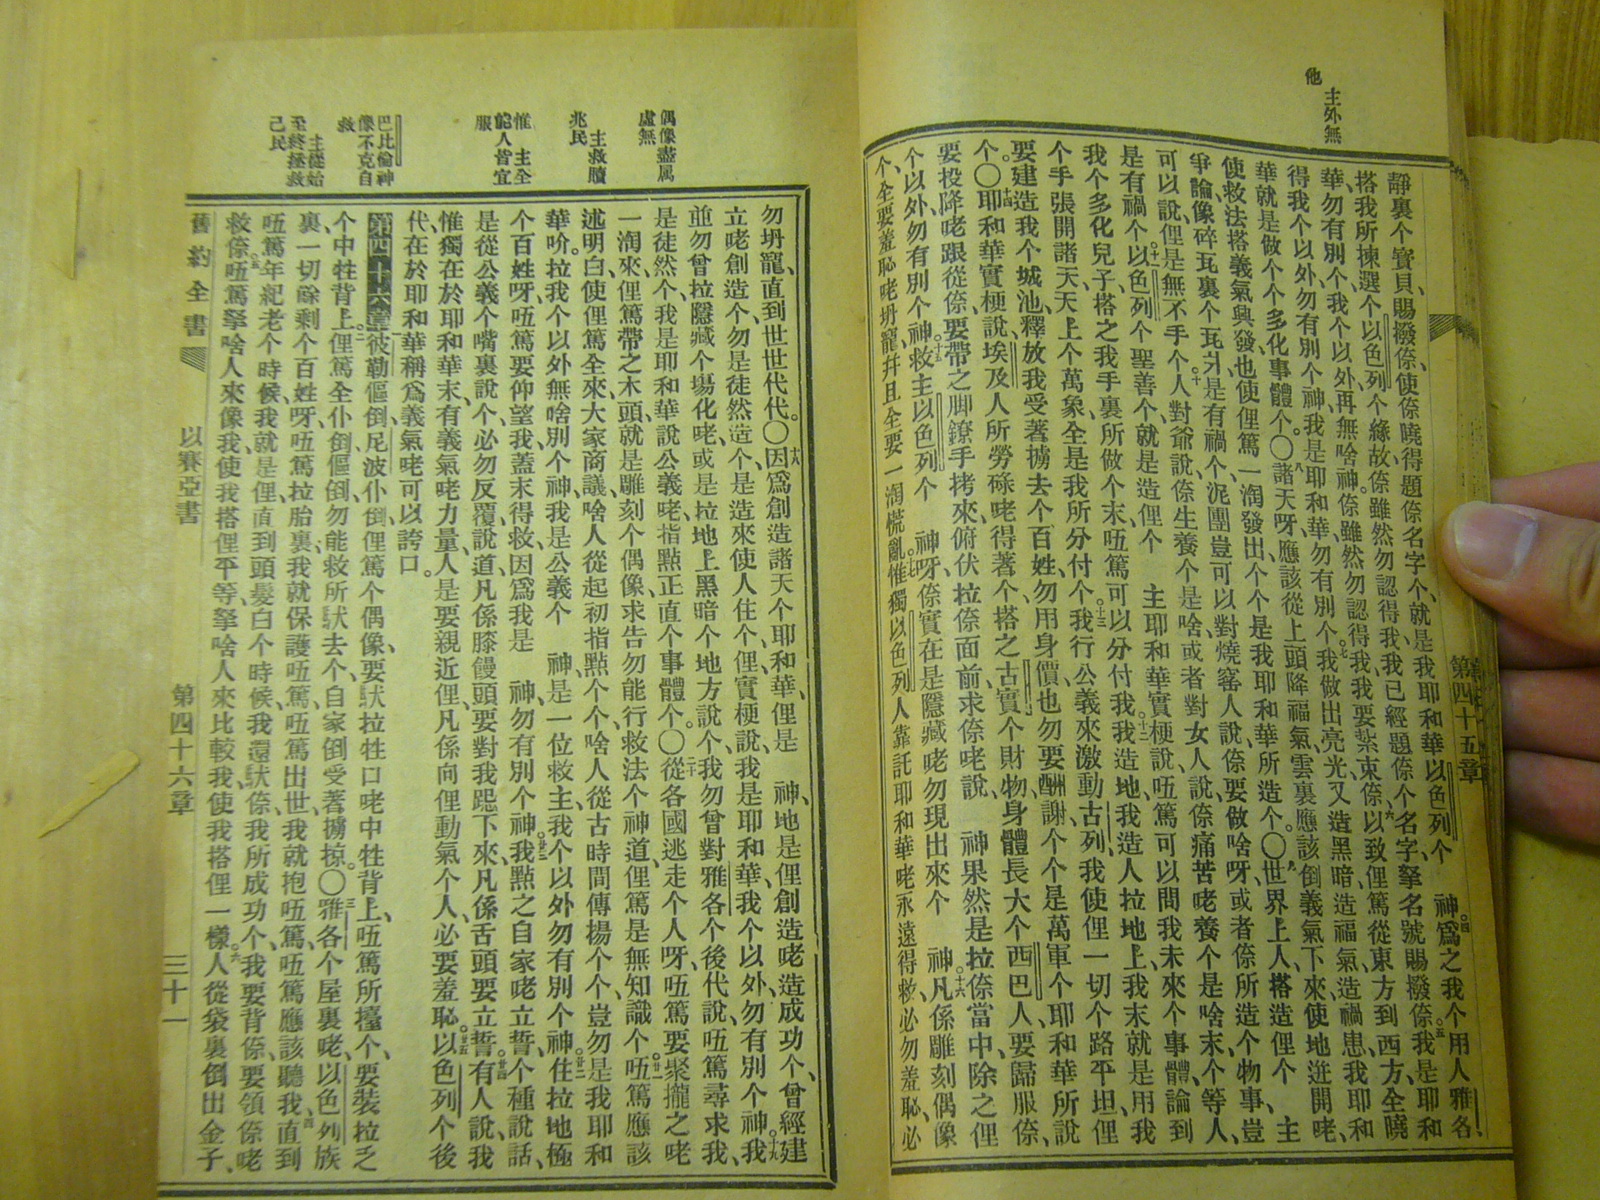 主外無
他
第四十五章
靜裏个寶貝、賜撥倷、使倷曉得題倷名字个、就是我耶和華以色列个　神。爲之我个用人雅各、
搭我所揀選个以色列个緣故、倷雖然勿認得我、我已經題倷个名字、拏名號賜撥倷。我是耶和
華、勿有別个、我个以外、再無啥神。倷雖然勿認得我、我要紮束倷。以致俚篤從東方到西方、全曉
得我个以外、勿有別个神、我是耶和華、勿有別个。我做出亮光、又造黑暗、造福氣、造禍患、我耶和
華就是做个个多化事體个。〇諸天呀、應該從上頭降福氣、雲裏應該倒義氣下來、使地迸開咾、
使救法搭義氣興發、也使俚篤一淘發出、个个是我耶和華所造个。〇世界上人、搭造俚个　主
爭論、像碎瓦裏个瓦爿、是有禍个、泥團豈可以對燒窰人說、倷要做啥呀、或者倷所造个物事、豈
可以說、俚是無不手个。人對爺說、倷生養个是啥、或者對女人說、倷痛苦咾養个是啥末、个等人、
是有禍个。以色列个聖善个、就是造俚个　主耶和華實梗說、唔篤可以問我未來个事體、論到
我个多化兒子、搭之我手裏所做个末、唔篤可以分付我。我造地、我造人拉地上、我末就是用我
个手張開諸天、天上个萬象、全是我所分付个。我行公義來激動古列、我使俚一切个路平坦、俚
要建造我个城池、釋放我受著擄去个百姓、勿用身價、也勿要酬謝、个个是萬軍个耶和華所說
个。〇耶和華實梗說、埃及人所勞碌咾得著个、搭之古實个財物、身體長大个西巴人、要歸服倷、
要投降咾跟從倷、要帶之脚鐐手拷來俯伏拉倷面前、求倷咾說、　神果然是拉倷當中、除之俚
个以外、勿有別个神。救主以色列个　神呀、倷實在是隱藏咾勿現出來个　神。凡係雕刻偶像
个、全要羞恥咾坍寵、幷且全要一淘慌亂。惟獨以色列人靠託耶和華咾永遠得救、必勿羞恥、必
偶像盡屬
虛無
主救贖
兆民
惟主全
能人皆宜
服
巴比倫神
像不克自
救
主從始
至終拯救
己民
勿坍寵、直到世世代代。〇因爲創造諸天个耶和華、俚是　神、地是俚創造咾造成功个、曾經建
立咾創造个、勿是徒然造个、是造來使人住个、俚實梗說、我是耶和華、我个以外、勿有別个神。我
並勿曾拉隱藏个場化咾、或是拉地上黑暗个地方說个、我勿曾對雅各个後代說、唔篤尋求我、
是徒然个、我是耶和華、說公義咾指點正直个事體个。〇從各國逃走个人呀、唔篤要聚攏之咾
一淘來、俚篤帶之木頭、就是雕刻个偶像、求告勿能行救法个神道、俚篤是無知識个。唔篤應該
述明白、使俚篤全來、大家商議、啥人從起初指點个个、啥人從古時間傳揚个个、豈勿是我耶和
華吤。拉我个以外、無啥別个神、我是公義个　神、是一位救主、我个以外、勿有別个神。住拉地極
个百姓呀、唔篤要仰望我、蓋末得救、因爲我是　神、勿有別个神。我點之自家咾立誓、个種說話、
是從公義个嘴裏說个、必勿反覆、說道、凡係膝饅頭、要對我跽下來、凡係舌頭、要立誓。有人說、我
惟獨在於耶和華末、有義氣咾力量、人是要親近俚、凡係向俚動氣个人、必要羞恥。以色列个後
代、在於耶和華、稱爲義氣咾可以誇口。
第四十六章　彼勒傴倒、尼波仆倒、俚篤个偶像、要䭾拉牲口咾中牲背上、唔篤所擡个、要裝拉乏
个中牲背上。俚篤全仆倒傴倒、勿能救所䭾去个、自家倒受著擄掠。〇雅各个屋裏咾、以色列族
裏、一切賖剩个百姓呀、唔篤拉胎裏、我就保護唔篤、唔篤出世、我就抱唔篤、唔篤應該聽我。直到
唔篤年紀老个時候、我就是俚、直到頭髮白个時候、我還䭾倷、我所成功个、我要背倷、要領倷咾
救倷。唔篤拏啥人來像我、使我搭俚平等、拏啥人來比較我、使我搭俚一樣。人從袋裏倒出金子、
舊約全書　以賽亞書　第四十六章　三十一